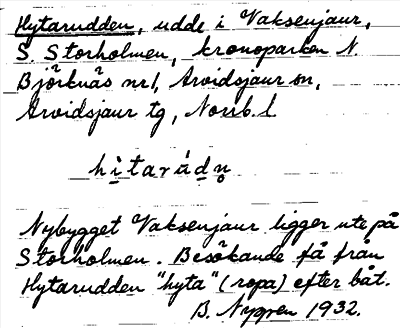 Hytarudden, udde i Vaksenjaur,
S. Storholmen, kronoparken N.
Björknäs nr 1, Arvidsjaur sn,
Arvidsjaur tg, Norrb. l.
hìtarádn̥
Nybygget Vaksenjaur ligger ute på
Storholmen. Besökande få från
Hytarudden "hyta" (ropa) efter båt.
B. Nygren 1932.